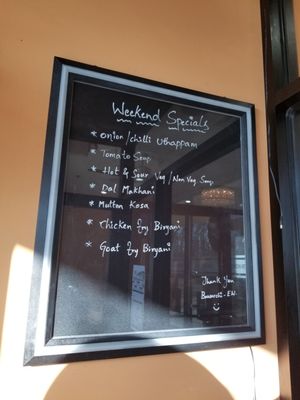 Weekend Specials
* Onion/chilli Uthappam
* Tomato Soup
* Hot & Sour Veg/Non Veg Soup
* Dal Makhani
* Mutton Kosa
* Chicken fry Biryani
* Goat fry Biryani
Thank You